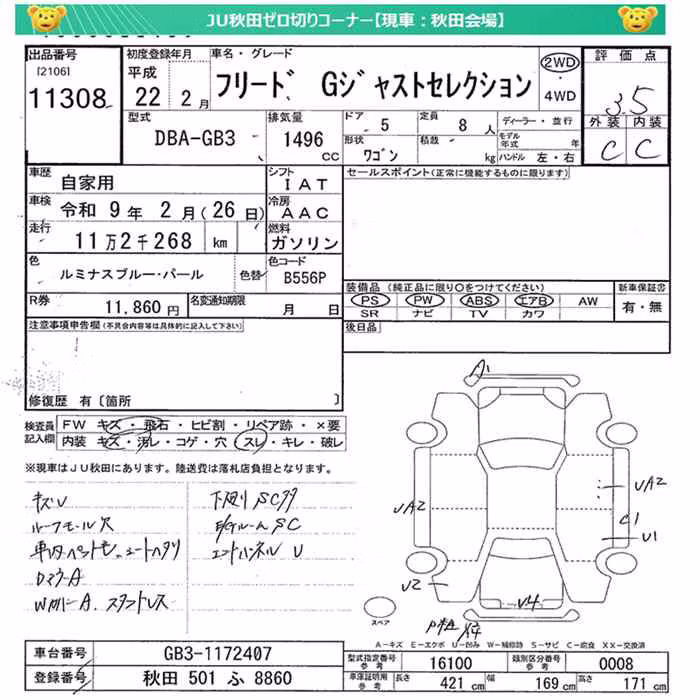 JU秋田ゼロ切りコーナー【現車：秋田会場】
出品番号
[2106]
11308
初度登録年月
平成
22 2月
車名・グレード
フリード Gジャストセレクション
2WD
・
4WD
評価点
3.5
外装 内装
C C
型式
DBA-GB3
排気量
1496
CC
ドア 5
定員 8 人
ディーラー・並行
形状
ワゴン
積載
kg
モデル年式 年
ハンドル 左・右
車歴
自家用
シフト
IAT
セールスポイント(正常に機能するものに限ります)
車検 令和 9年 2月(26日)
冷房
AAC
走行
11万2千268 km
燃料
ガソリン
色
ルミナスブルー・パール
色替
色コード
B556P
装備品(純正品に限り○をつけてください)
新車保証書
有・無
PS PW ABS エアB AW
SR ナビ TV カワ
R券
11,860円
名変通知期限
月 日
後日品
注意事項申告欄(不具合内容等は具体的に記入して下さい)
修復歴 有〔箇所 〕
検査員記入欄
FW キズ・飛石・ヒビ割・リペア跡・×要
内装 キズ・汚レ・コゲ・穴・スレ・キレ・破レ
※現車はJU秋田にあります。陸送費は落札店負担となります。
キズU
ルーフモール穴
下廻りSCサ
E/GルームSC
エンドパネル U
A1
UA2
UA2
C1
U1
U2
U4
X4
スペア
A－キズ E－エクボ U－凹み W－補修跡 S－サビ C－腐食 XX－交換済
車台番号 GB3-1172407
登録番号 秋田 501 ふ 8860
型式指定番号
参考
16100
類別区分番号
参考
0008
車庫証明用
参考
長さ 421 cm
幅 169 cm
高さ 171 cm